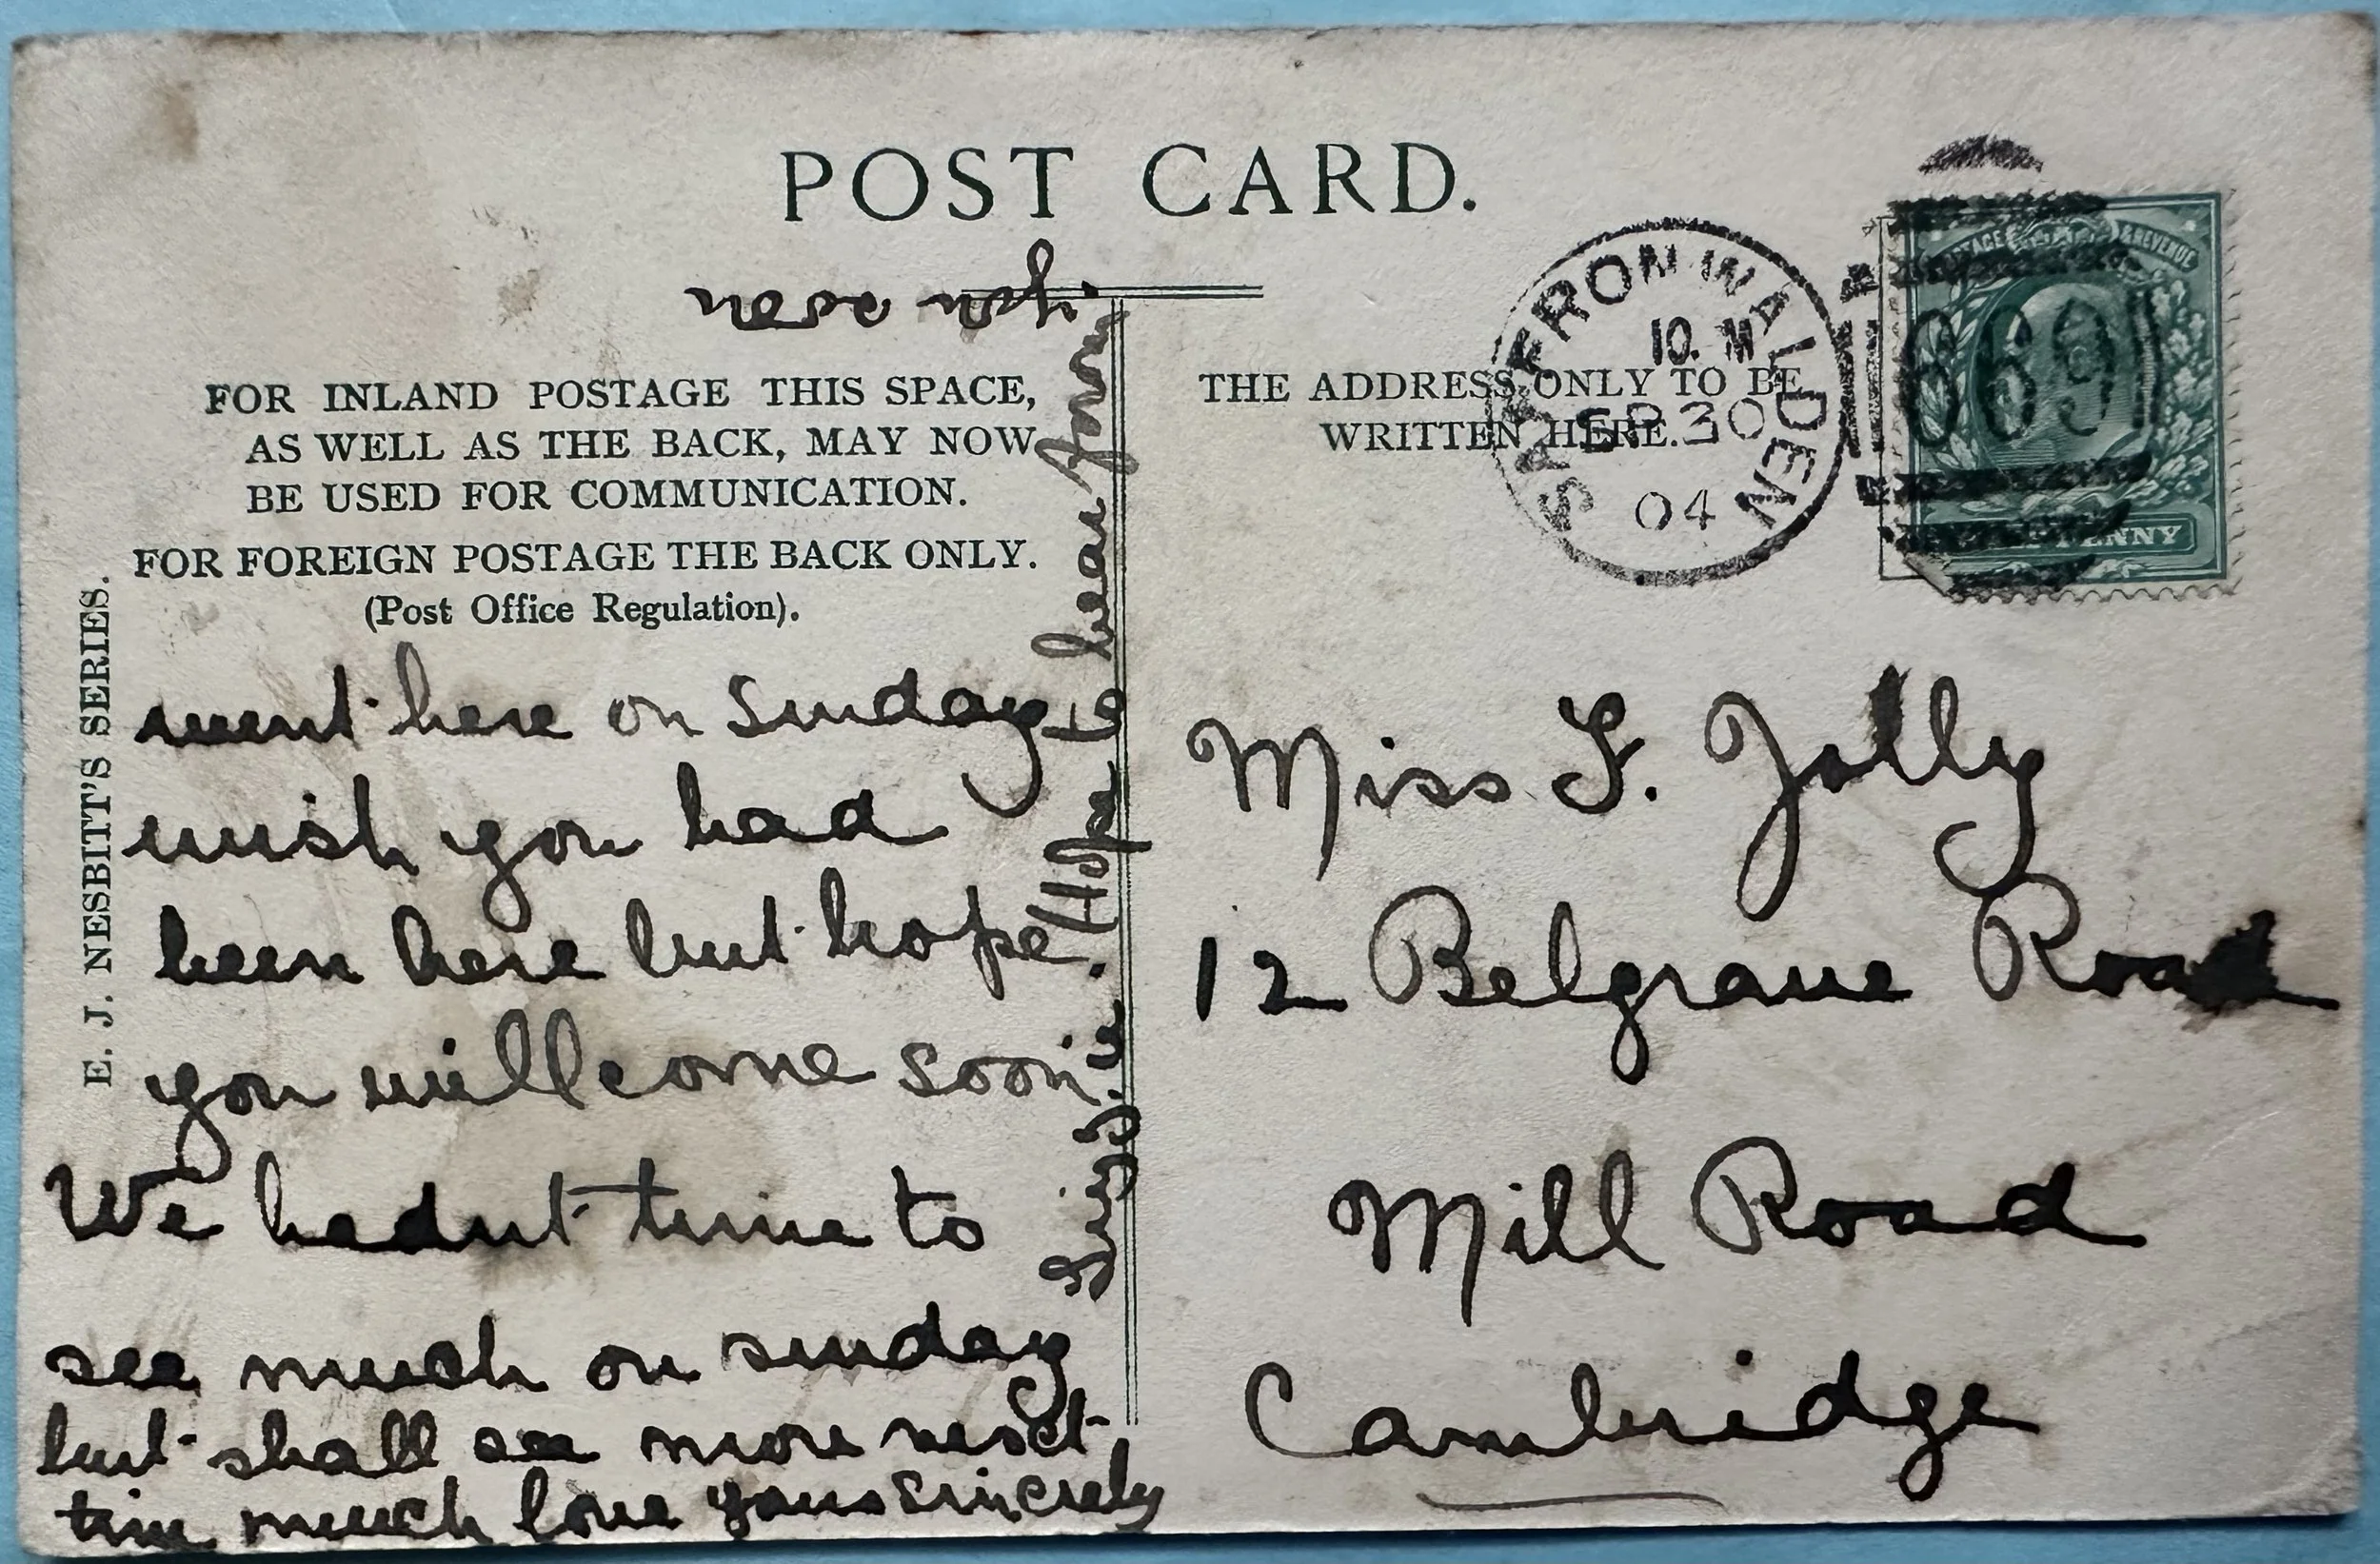 POST CARD.
FOR INLAND POSTAGE THIS SPACE,
AS WELL AS THE BACK, MAY NOW
BE USED FOR COMMUNICATION.
FOR FOREIGN POSTAGE THE BACK ONLY.
(Post Office Regulation).
E. J. NESBITT'S SERIES.
went here on Sunday
wish you had
been here but hope
you will come soon
We hadnt time to
see much on sunday
but shall see more next
time much love yours sincerely
Hope to hear from
THE ADDRESS ONLY TO BE
WRITTEN HERE.
SAFFRON WALDEN
10. M
SP 30
04
POSTAGE & REVENUE
691
PENNY
Miss F. Jolly
12 Belgrave Road
Mill Road
Cambridge